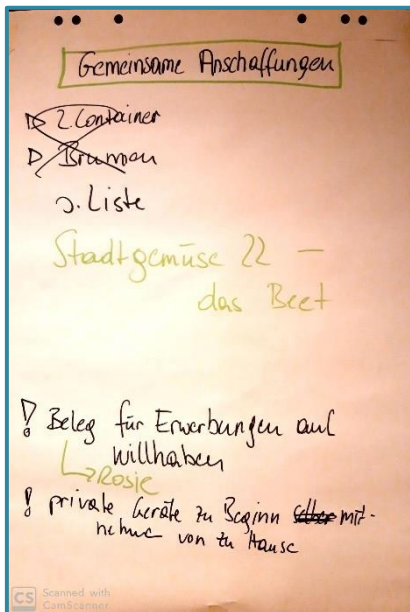 Gemeinsame Anschaffungen
▷ 2. Container
▷ Brunnen
s. Liste
Stadtgemüse 22 –
das Beet
! Beleg für Erwerbungen auf
willhaben
↳ Rosie
! private Geräte zu Beginn selber mit-
nehme von zu Hause
CS Scanned with
CamScanner